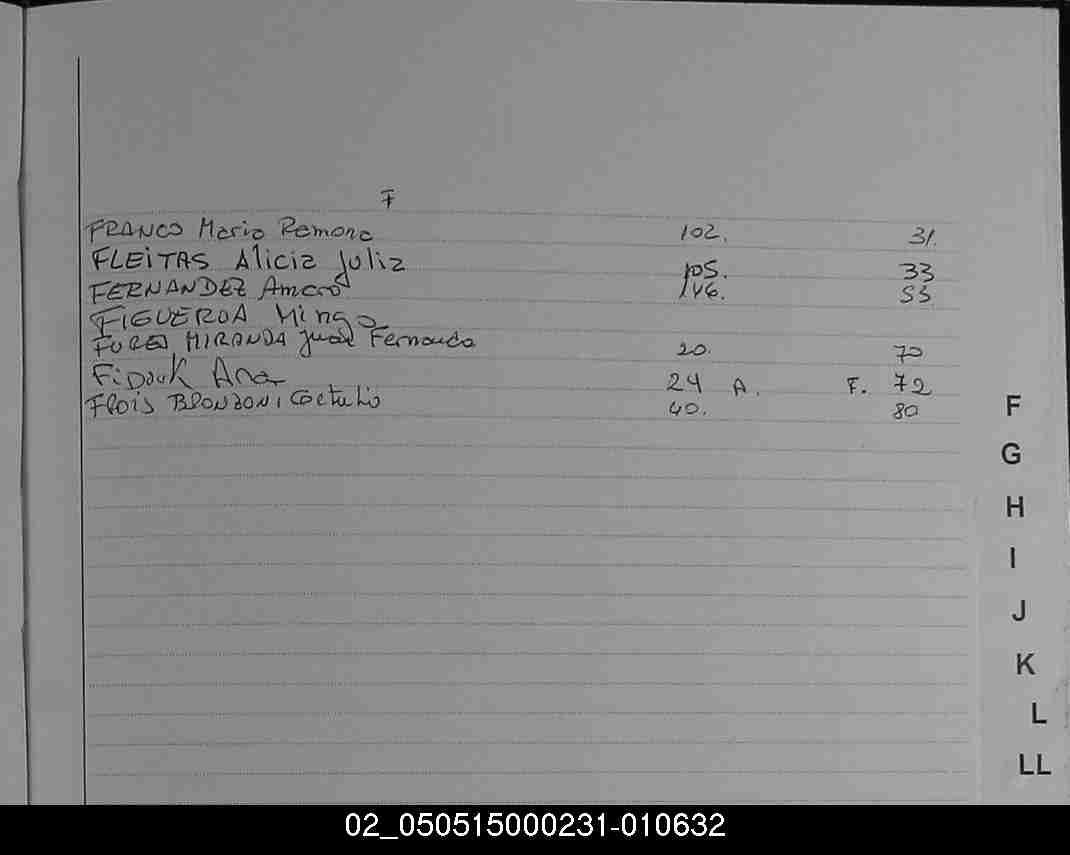 F
FRANCO Maria Ramona 102. 31.
FLEITAS Alicia Julia 105. 33
FERNANDEZ Amaro 146. 53
FIGUEROA Mingo
MIRANDA Juan Fernando 20. 70
Ana 24 A. F. 72
FLOIS 40. 80
F
G
H
I
J
K
L
LL
02_050515000231-010632